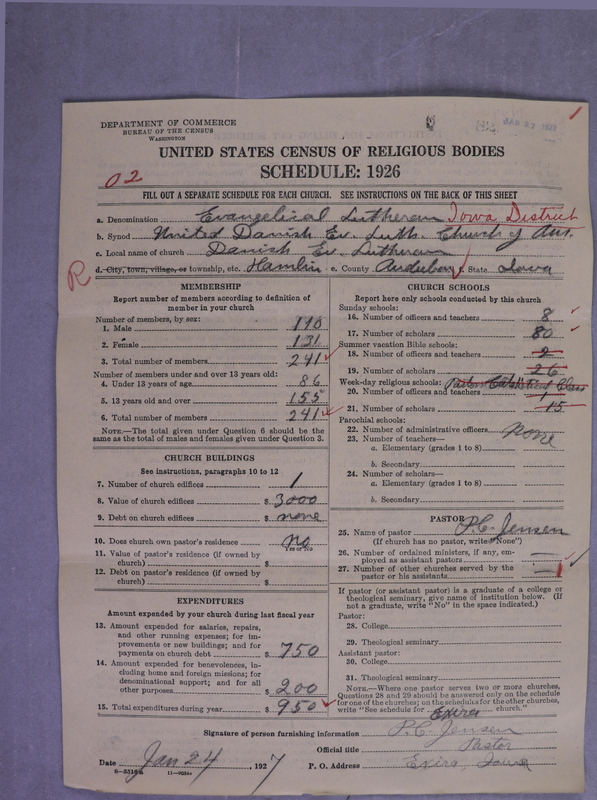 DEPARTMENT OF COMMERCE
BUREAU OF THE CENSUS
WASHINGTON
UNITED STATES CENSUS OF RELIGIOUS BODIES
SCHEDULE: 1926
02
FILL OUT A SEPARATE SCHEDULE FOR EACH CHURCH. SEE INSTRUCTIONS ON THE BACK OF THIS SHEET
a. Denomination Evangelical Lutheran Iowa District
b. Synod United Danish Ev. Luth. Church of Am.
c. Local name of church Danish Ev. Lutheran
R
d. City, town, village, or township, etc. Hamlin e. County Audubon f. State Iowa
MEMBERSHIP
Report number of members according to definition of member in your church
Number of members, by sex:
1. Male 110
2. Female 131
3. Total number of members 241
Number of members under and over 13 years old:
4. Under 13 years of age 86
5. 13 years old and over 155
6. Total number of members 241
NOTE.—The total given under Question 6 should be the same as the total of males and females given under Question 3.
CHURCH BUILDINGS
See instructions, paragraphs 10 to 12
7. Number of church edifices 1
8. Value of church edifices $ 3000
9. Debt on church edifices $ none
10. Does church own pastor's residence No
Yes or No
11. Value of pastor's residence (if owned by church) $
12. Debt on pastor's residence (if owned by church) $
EXPENDITURES
Amount expended by your church during last fiscal year
13. Amount expended for salaries, repairs, and other running expenses; for improvements or new buildings; and for payments on church debt $ 750
14. Amount expended for benevolences, including home and foreign missions; for denominational support; and for all other purposes $ 200
15. Total expenditures during year $ 950
CHURCH SCHOOLS
Report here only schools conducted by this church
Sunday schools:
16. Number of officers and teachers 8
17. Number of scholars 80
Summer vacation Bible schools:
18. Number of officers and teachers 2
19. Number of scholars 26
Week-day religious schools:
20. Number of officers and teachers 1
21. Number of scholars 15
Parochial schools:
22. Number of administrative officers none
23. Number of teachers—
a. Elementary (grades 1 to 8)
b. Secondary
24. Number of scholars—
a. Elementary (grades 1 to 8)
b. Secondary
PASTOR
25. Name of pastor P.C. Jensen
(If church has no pastor, write "None")
26. Number of ordained ministers, if any, employed as assistant pastors —
27. Number of other churches served by the pastor or his assistants 1
If pastor (or assistant pastor) is a graduate of a college or theological seminary, give name of institution below. (If not a graduate, write "No" in the space indicated.)
Pastor:
28. College
29. Theological seminary
Assistant pastor:
30. College
31. Theological seminary
NOTE.—Where one pastor serves two or more churches, Questions 28 and 29 should be answered only on the schedule for one of the churches; on the schedules for the other churches, write "See schedule for Exira church."
Signature of person furnishing information P.C. Jensen
Official title Pastor
Date Jan 24, 1927 P. O. Address Exira, Iowa
8—5318a 11—9034a